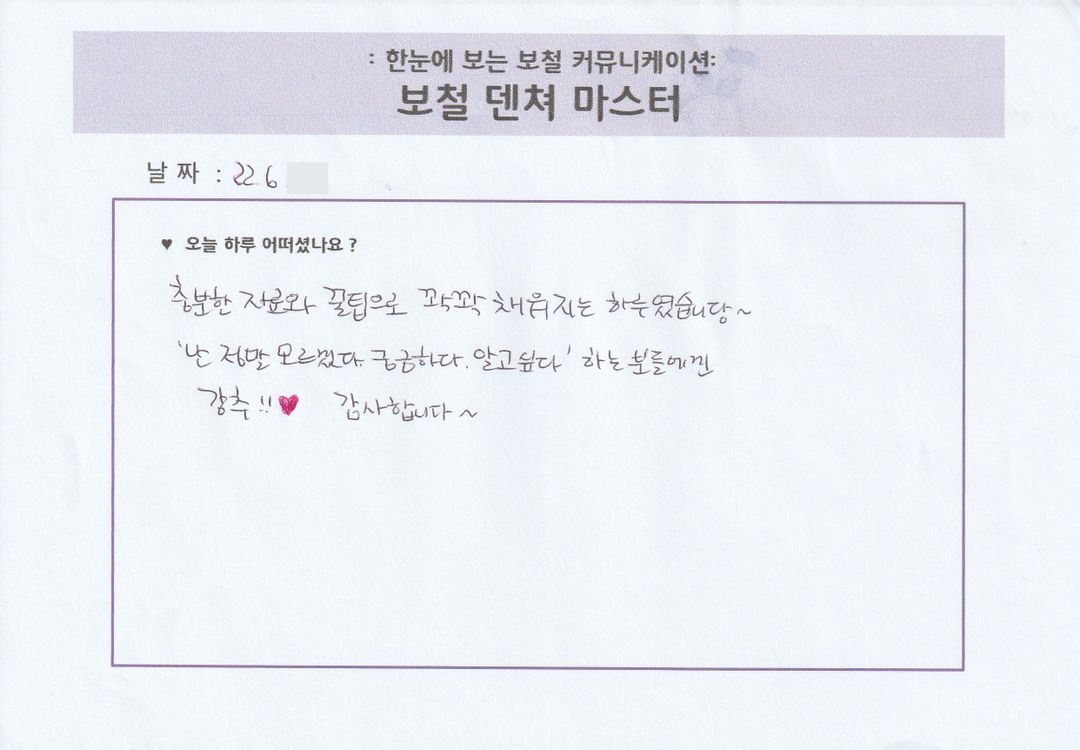 : 한눈에 보는 보철 커뮤니케이션:
보철 덴쳐 마스터
날 짜 : 22. 6
♥ 오늘 하루 어떠셨나요 ?
충분한 자료와 꿀팁으로 꽉꽉 채워지는 하루였습니당~
'난 정말 모르겠다. 궁금하다. 알고싶다' 하는 분들에겐
강추!!♥ 감사합니다~